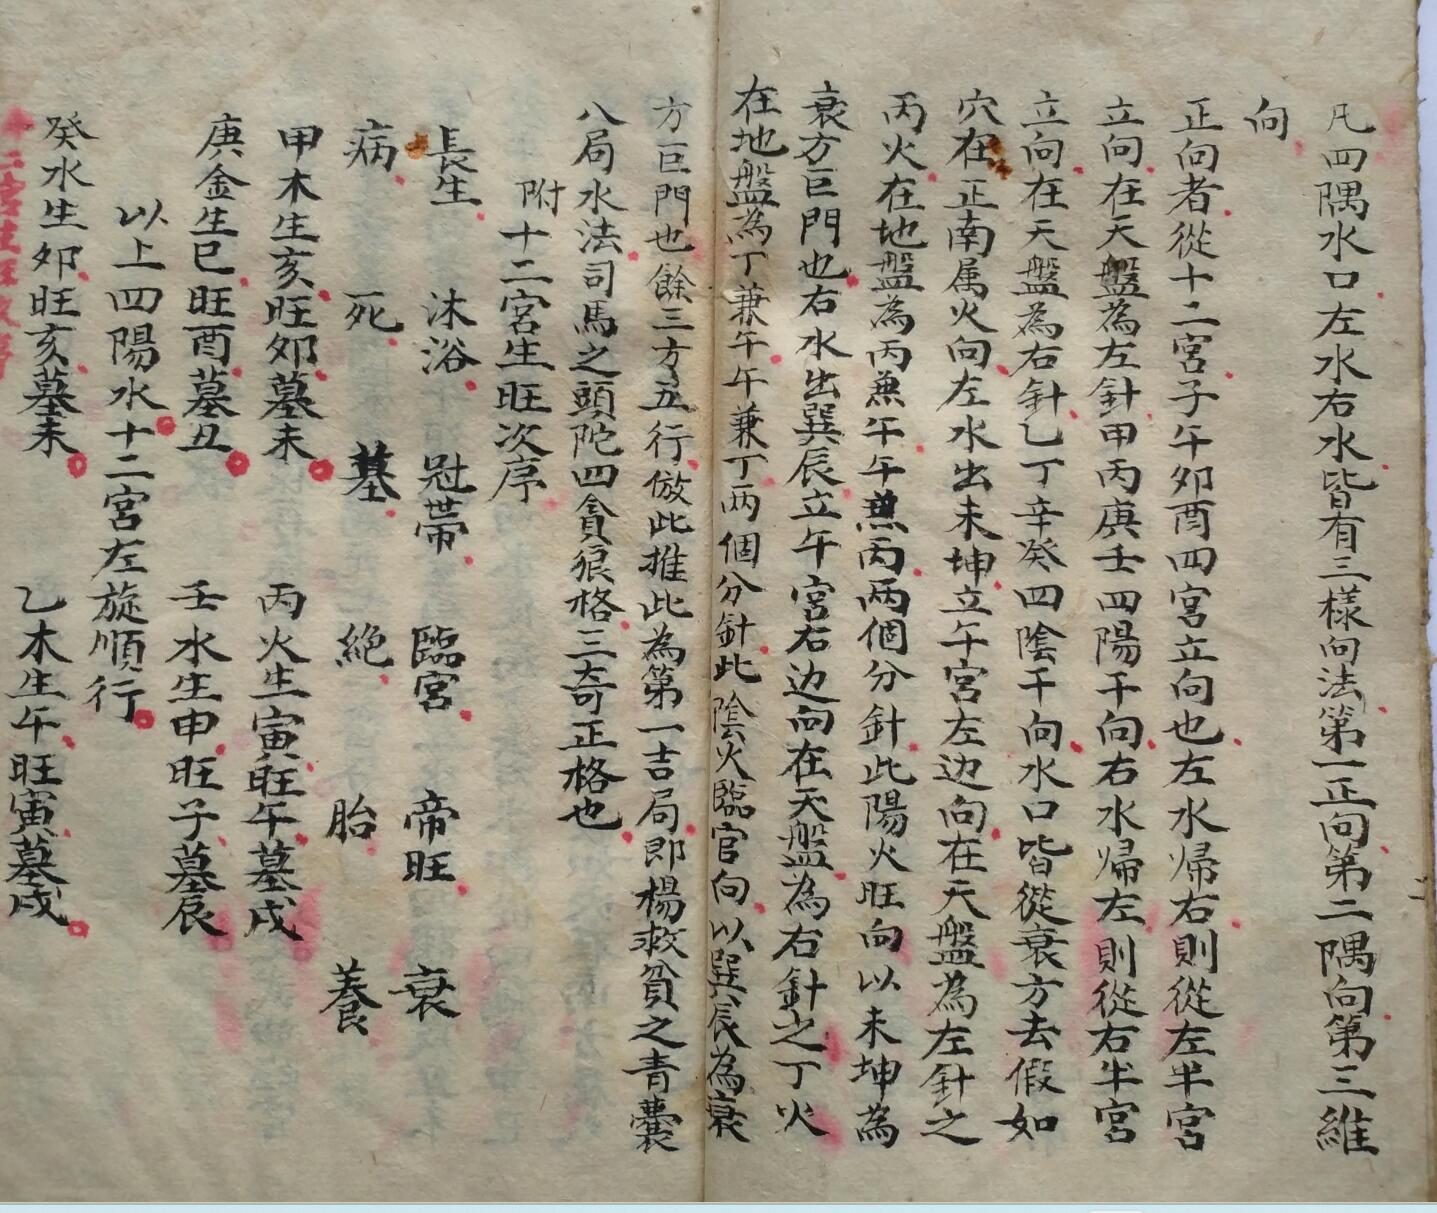 凡四隅水口左水右水皆有三樣向法第一正向第二隅向第三維
向
正向者從十二宮子午卯酉四宮立向也左水歸右則從左半宮
立向在天盤為左針甲丙庚壬四陽干向右水歸左則從右半宮
立向在天盤為右針乙丁辛癸四陰干向水口皆從衰方去假如
穴在正南属火向左水出未坤立午宮左边向在天盤為左針之
丙火在地盤為丙兼午午兼丙两個分針此陽火旺向以未坤為
衰方巨門也右水出巽辰立午宮右边向在天盤為右針之丁火
在地盤為丁兼午午兼丁两個分針此陰火臨官向以巽辰為衰
方巨門也餘三方五行倣此推此為第一吉局即楊救貧之青囊
八局水法司馬之頭陀四貪狼格三奇正格也
附十二宮生旺次序
長生 沐浴 冠帶 臨宮 帝旺 衰
病 死 墓 絕 胎 養
甲木生亥旺卯墓未 丙火生寅旺午墓戌
庚金生巳旺酉墓丑 壬水生申旺子墓辰
以上四陽水十二宮左旋順行
癸水生卯旺亥墓未 乙木生午旺寅墓戌